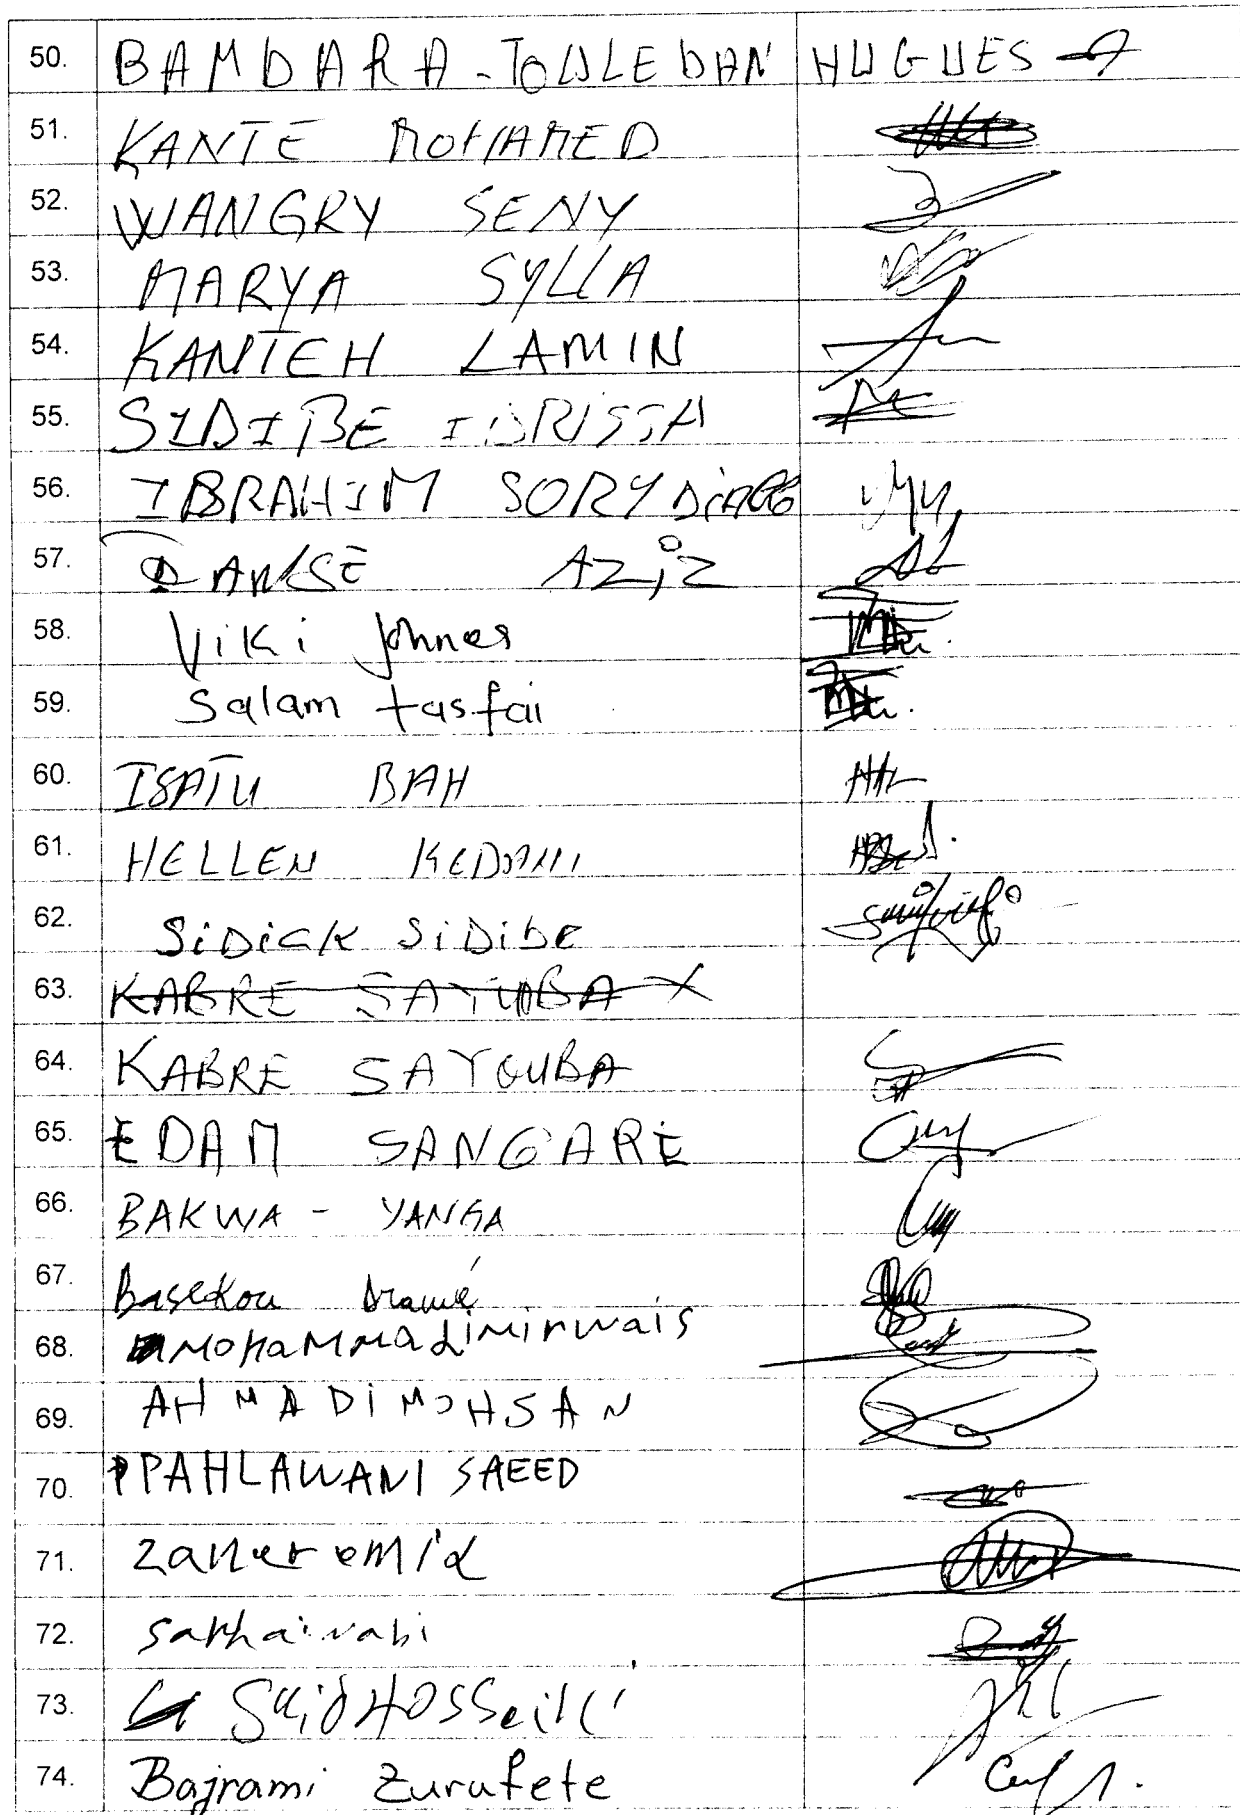 50. BAMDARA - TOWLEDAN HUGUES
51. KANTE MOHAMED
52. WANGRY SENY
53. MARYA SYLLA
54. KANTEH LAMIN
55. SIDIBE IDRISSA
56. IBRAHIM SORY
57. AZiZ
58. Viki Johnes
59. Salam tasfai
60. ISATU BAH
61. HELLEN
62. SiDiCK SiDibE
63. KABRE SAYUBA X
64. KABRE SAYOUBA
65. EDAM SANGARE
66. BAKWA - YANGA
67. Basekou Dramé
68. Mohammadimirwais
69. AHMADiMOHSAN
70. PAHLAWANI SAEED
71.
72.
73.
74. Bajrami Zurufete